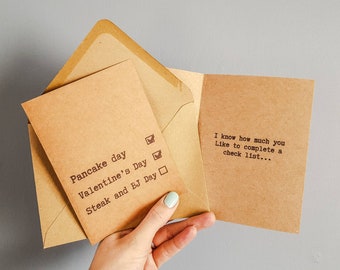 Pancake day ☑
Valentine's Day ☑
Steak and BJ Day ☐
I know how much you
Like to complete a
check list...